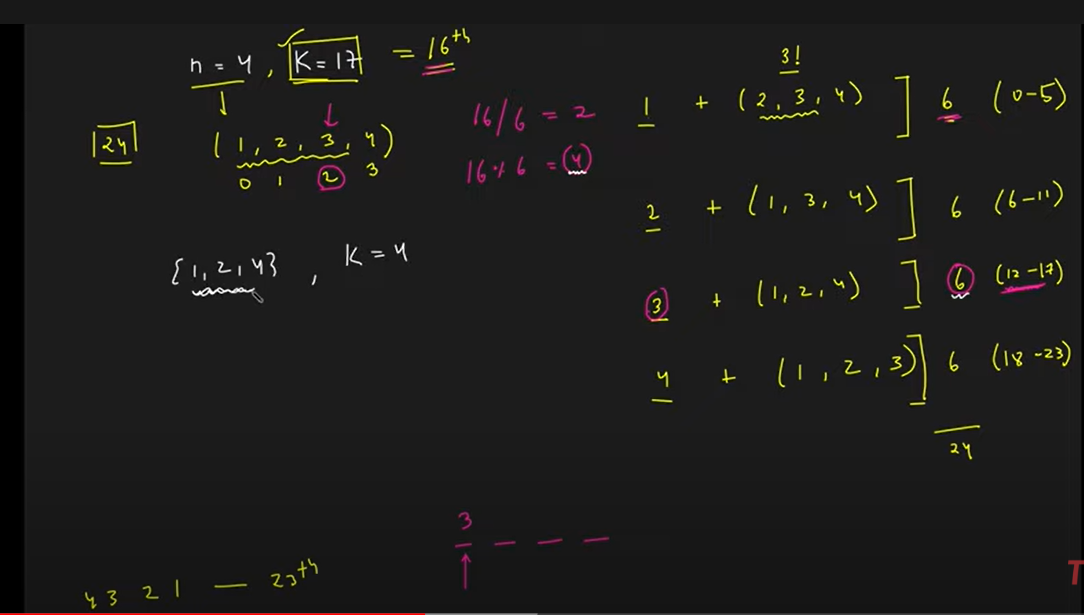 n = 4 , K = 17 = 16th
24 ( 1 , 2 , 3 , 4 )
0 1 2 3
16 / 6 = 2
16 % 6 = 4
{ 1 , 2 , 4 } , K = 4
3!
1 + ( 2 , 3 , 4 ) ] 6 (0-5)
2 + ( 1 , 3 , 4 ) ] 6 (6-11)
3 + ( 1 , 2 , 4 ) ] 6 (12-17)
4 + ( 1 , 2 , 3 ) ] 6 (18-23)
24
3 _ _ _
4 3 2 1 — 23th
T